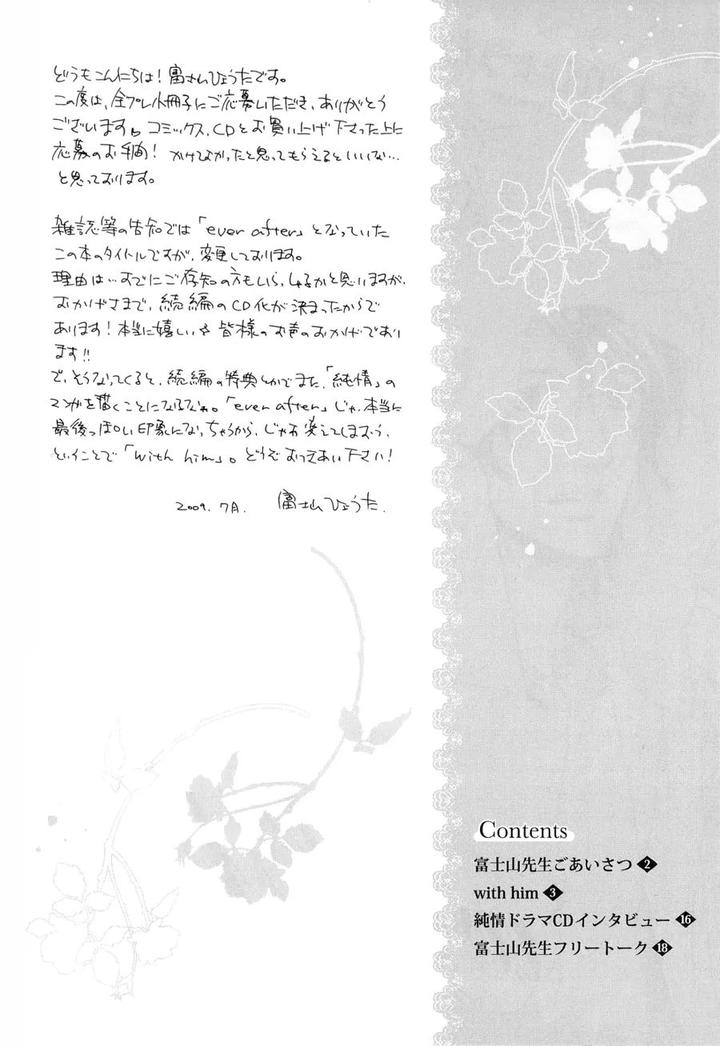 どうもこんにちは！富士山ひょうたです。
この度は、全プレ小冊子にご応募いただき、ありがとう
ございます。コミックス、CDとお買い上げ下さった上に
応募のお手間！かけてよかったと思ってもらえるといいな…
と思っております。
雑誌等の告知では「ever after」となっていた
この本のタイトルですが、変更しております。
理由は…すでにご存知の方もいらっしゃるかと思いますが、
おかげさまで、続編のCD化が決まったからで
あります！本当に嬉しい。皆様のお声のおかげであり
ます!!
で、そうなってくると、続編の特典とかでまた、「純情」の
マンガを描くことになるなぁ。「ever after」じゃ、本当に
最後っぽい印象になっちゃうから、じゃあ変えてしまおう、
ということで「with him」。どうぞおつきあい下さい！
2009.7月. 富士山ひょうた.
Contents
富士山先生ごあいさつ 2
with him 3
純情ドラマCDインタビュー 16
富士山先生フリートーク 18